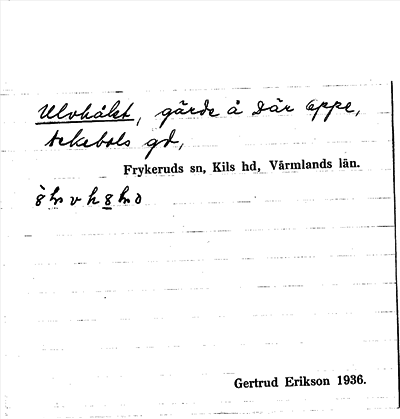 Ulvhålet, gärde å där oppe,
Ackabols gd,
Frykeruds sn, Kils hd, Värmlands län.
Gertrud Erikson 1936.